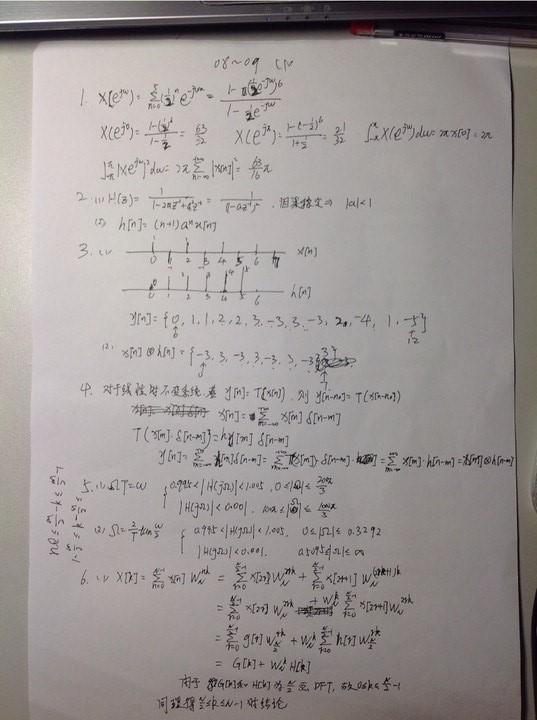 08~09
1. X(e^{jω}) = Σ_{n=0}^{5} (1/2)^n e^{-jωn} = (1-(1/2 e^{-jω})^6)/(1-1/2 e^{-jω})
X(e^{j0}) = (1-(1/2)^6)/(1-1/2) = 63/32 X(e^{jπ}) = (1-(-1/2)^6)/(1+1/2) = 21/32 ∫_{-π}^{π} X(e^{jω})dω = 2πx[0] = 2π
∫_{-π}^{π} |X(e^{jω})|^2 dω = 2π Σ_{n=-∞}^{+∞} |x[n]|^2 = 63/16 π
2. (1) H(z) = 1/(1-2az^{-1}+a^2z^{-2}) = 1/(1-az^{-1})^2 , 因果稳定 ⇒ |a|<1
(2) h[n] = (n+1)a^n u[n]
3. (1) 0 1 2 3 4 5 6 7 x[n]
0 1 2 3 4 5 6 h[n]
y[n] = {0, 1, 1, 2, 2, 3, -3, 3, -3, 2, -4, 1, -5}
(2) x[n] ⊗ h[n] = {-3, 3, -3, 3, -3, 3,
4. 对于线性时不变系统, 若 y[n] = T(x[n]), 则 y[n-n0] = T(x[n-n0])
x[n] = Σ_{m=-∞}^{+∞} x[m] δ[n-m]
T(x[m]·δ[n-m]) = δ[n-m]
y[n] = = Σ_{m=-∞}^{+∞} x[m]·h[n-m] = x[n]⊗h[n]
5. (1) ΩT=ω { 0.995<|H(jΩ)|<1.005, 0≤|Ω|≤
|H(jΩ)|<0.001,
(2) Ω = 2/T tan ω/2 { 0.995<|H(jΩ)|<1.005, 0≤|Ω|≤0.3292
|H(jΩ)|<0.001, 0.5095≤|Ω|≤∞
6. (1) X[k] = Σ_{n=0}^{N-1} x[n] W_N^{nk} = Σ_{r=0}^{N/2-1} x[2r] W_N^{2rk} + Σ_{r=0}^{N/2-1} x[2r+1] W_N^{(2r+1)k}
= Σ_{r=0}^{N/2-1} x[2r] W_N^{2rk} + W_N^k Σ_{r=0}^{N/2-1} x[2r+1] W_N^{2rk}
= Σ_{r=0}^{N/2-1} g[r] W_{N/2}^{rk} + W_N^k Σ_{r=0}^{N/2-1} h[r] W_{N/2}^{rk}
= G[k] + W_N^k H[k]
由于 G[k]和H[k]为N/2点DFT, 故0≤k≤N/2-1
同理得N/2≤k≤N-1时结论